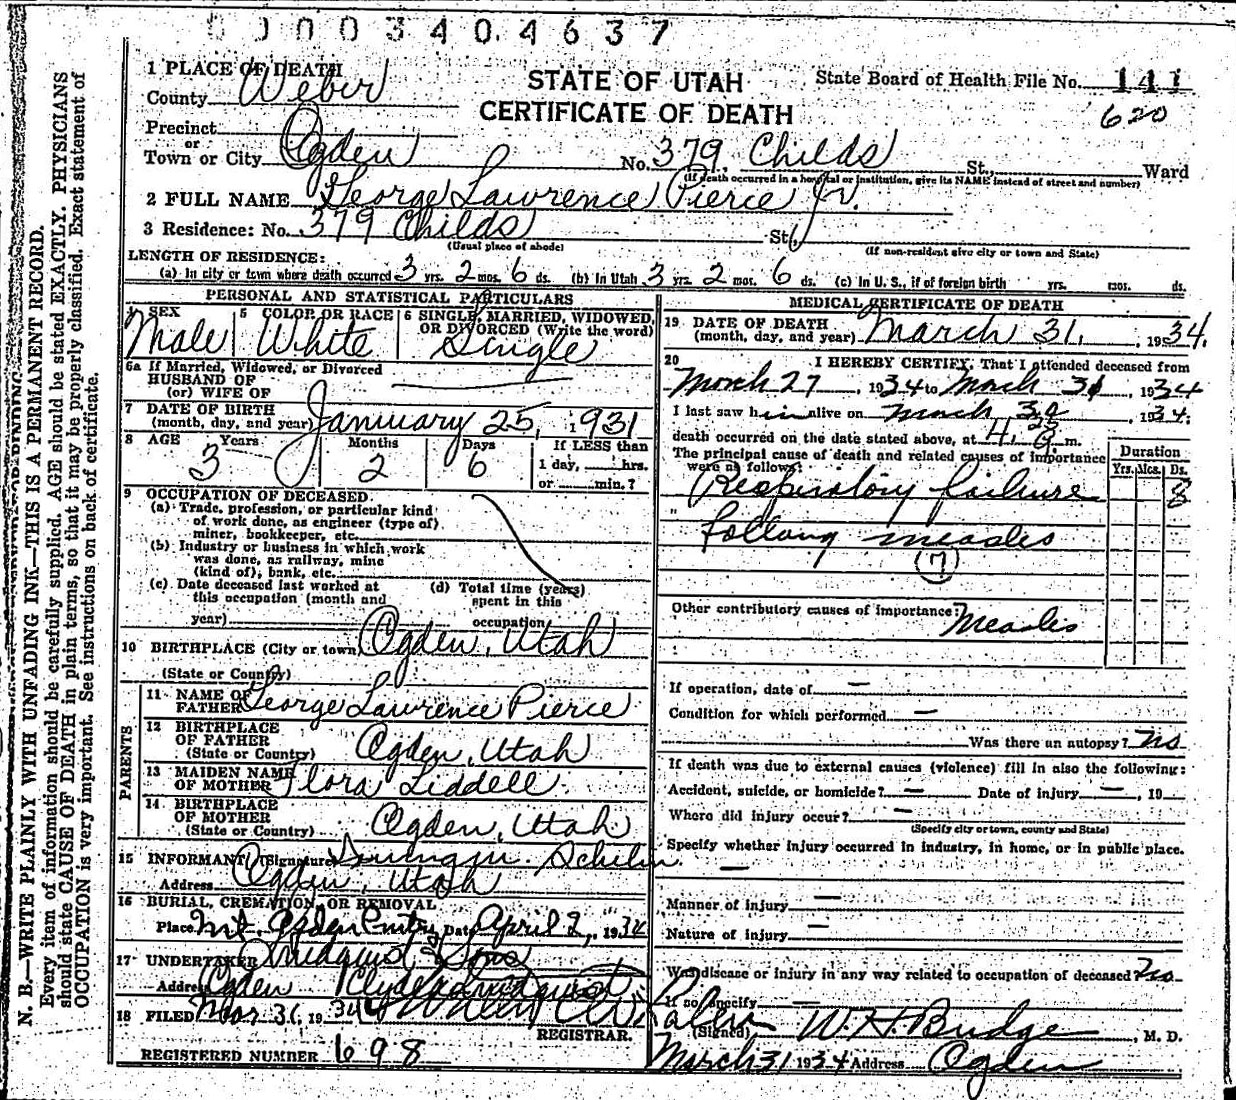 0 0 0 3 4 0 4 6 3 7
STATE OF UTAH
CERTIFICATE OF DEATH
State Board of Health File No. 141
620
1 PLACE OF DEATH
County Weber
Precinct
or
Town or City Ogden No. 379 Childs St., Ward
(If death occurred in a hospital or institution, give its NAME instead of street and number)
2 FULL NAME George Lawrence Pierce Jr.
3 Residence: No. 379 Childs St.
(Usual place of abode) (If non-resident give city or town and State)
LENGTH OF RESIDENCE:
(a) In city or town where death occurred 3 yrs. 2 mos. 6 ds. (b) In Utah 3 yrs. 2 mos. 6 ds. (c) In U. S., if of foreign birth yrs. mos. ds.
PERSONAL AND STATISTICAL PARTICULARS
4 SEX Male
5 COLOR OR RACE White
6 SINGLE, MARRIED, WIDOWED, OR DIVORCED (Write the word) Single
6a If Married, Widowed, or Divorced
HUSBAND OF
(or) WIFE OF
7 DATE OF BIRTH
(month, day, and year) January 25, 1931
8 AGE Years 3 Months 2 Days 6 If LESS than
1 day, hrs.
or min.?
9 OCCUPATION OF DECEASED
(a) Trade, profession, or particular kind
of work done, as engineer (type of)
miner, bookkeeper, etc.
(b) Industry or business in which work
was done, as railway, mine
(kind of), bank, etc.
(c) Date deceased last worked at
this occupation (month and
year)
(d) Total time (years)
spent in this
occupation
10 BIRTHPLACE (City or town) Ogden, Utah
(State or Country)
PARENTS
11 NAME OF
FATHER George Lawrence Pierce
12 BIRTHPLACE
OF FATHER
(State or Country) Ogden, Utah
13 MAIDEN NAME
OF MOTHER Flora Liddell
14 BIRTHPLACE
OF MOTHER
(State or Country) Ogden, Utah
15 INFORMANT (Signature)
Address Ogden, Utah
16 BURIAL, CREMATION, OR REMOVAL
Place Mt. Ogden Date April 2, 1934
17 UNDERTAKER & Sons
Address Ogden
18 FILED Mar 31, 1934
REGISTRAR.
REGISTERED NUMBER 698
MEDICAL CERTIFICATE OF DEATH
19 DATE OF DEATH
(month, day, and year) March 31, 1934.
20 I HEREBY CERTIFY, That I attended deceased from
March 27, 1934 to March 31, 1934
I last saw him alive on March 30, 1934.
death occurred on the date stated above, at m.
The principal cause of death and related causes of importance
were as follows:
Duration
Yrs. Mos. Ds.
Respiratory failure 8
" measles
7
Other contributory causes of importance:
Measles
If operation, date of —
Condition for which performed —
Was there an autopsy? no
If death was due to external causes (violence) fill in also the following:
Accident, suicide, or homicide? — Date of injury —, 19
Where did injury occur? —
(Specify city or town, county and State)
Specify whether injury occurred in industry, in home, or in public place.
—
Manner of injury —
Nature of injury —
Was disease or injury in any way related to occupation of deceased? no
If so, specify —
(Signed) W. H. Budge, M. D.
March 31 1934 Address Ogden
N. B.—WRITE PLAINLY WITH UNFADING INK—THIS IS A PERMANENT RECORD.
Every item of information should be carefully supplied. AGE should be stated EXACTLY. PHYSICIANS
should state CAUSE OF DEATH in plain terms, so that it may be properly classified. Exact statement of
OCCUPATION is very important. See instructions on back of certificate.